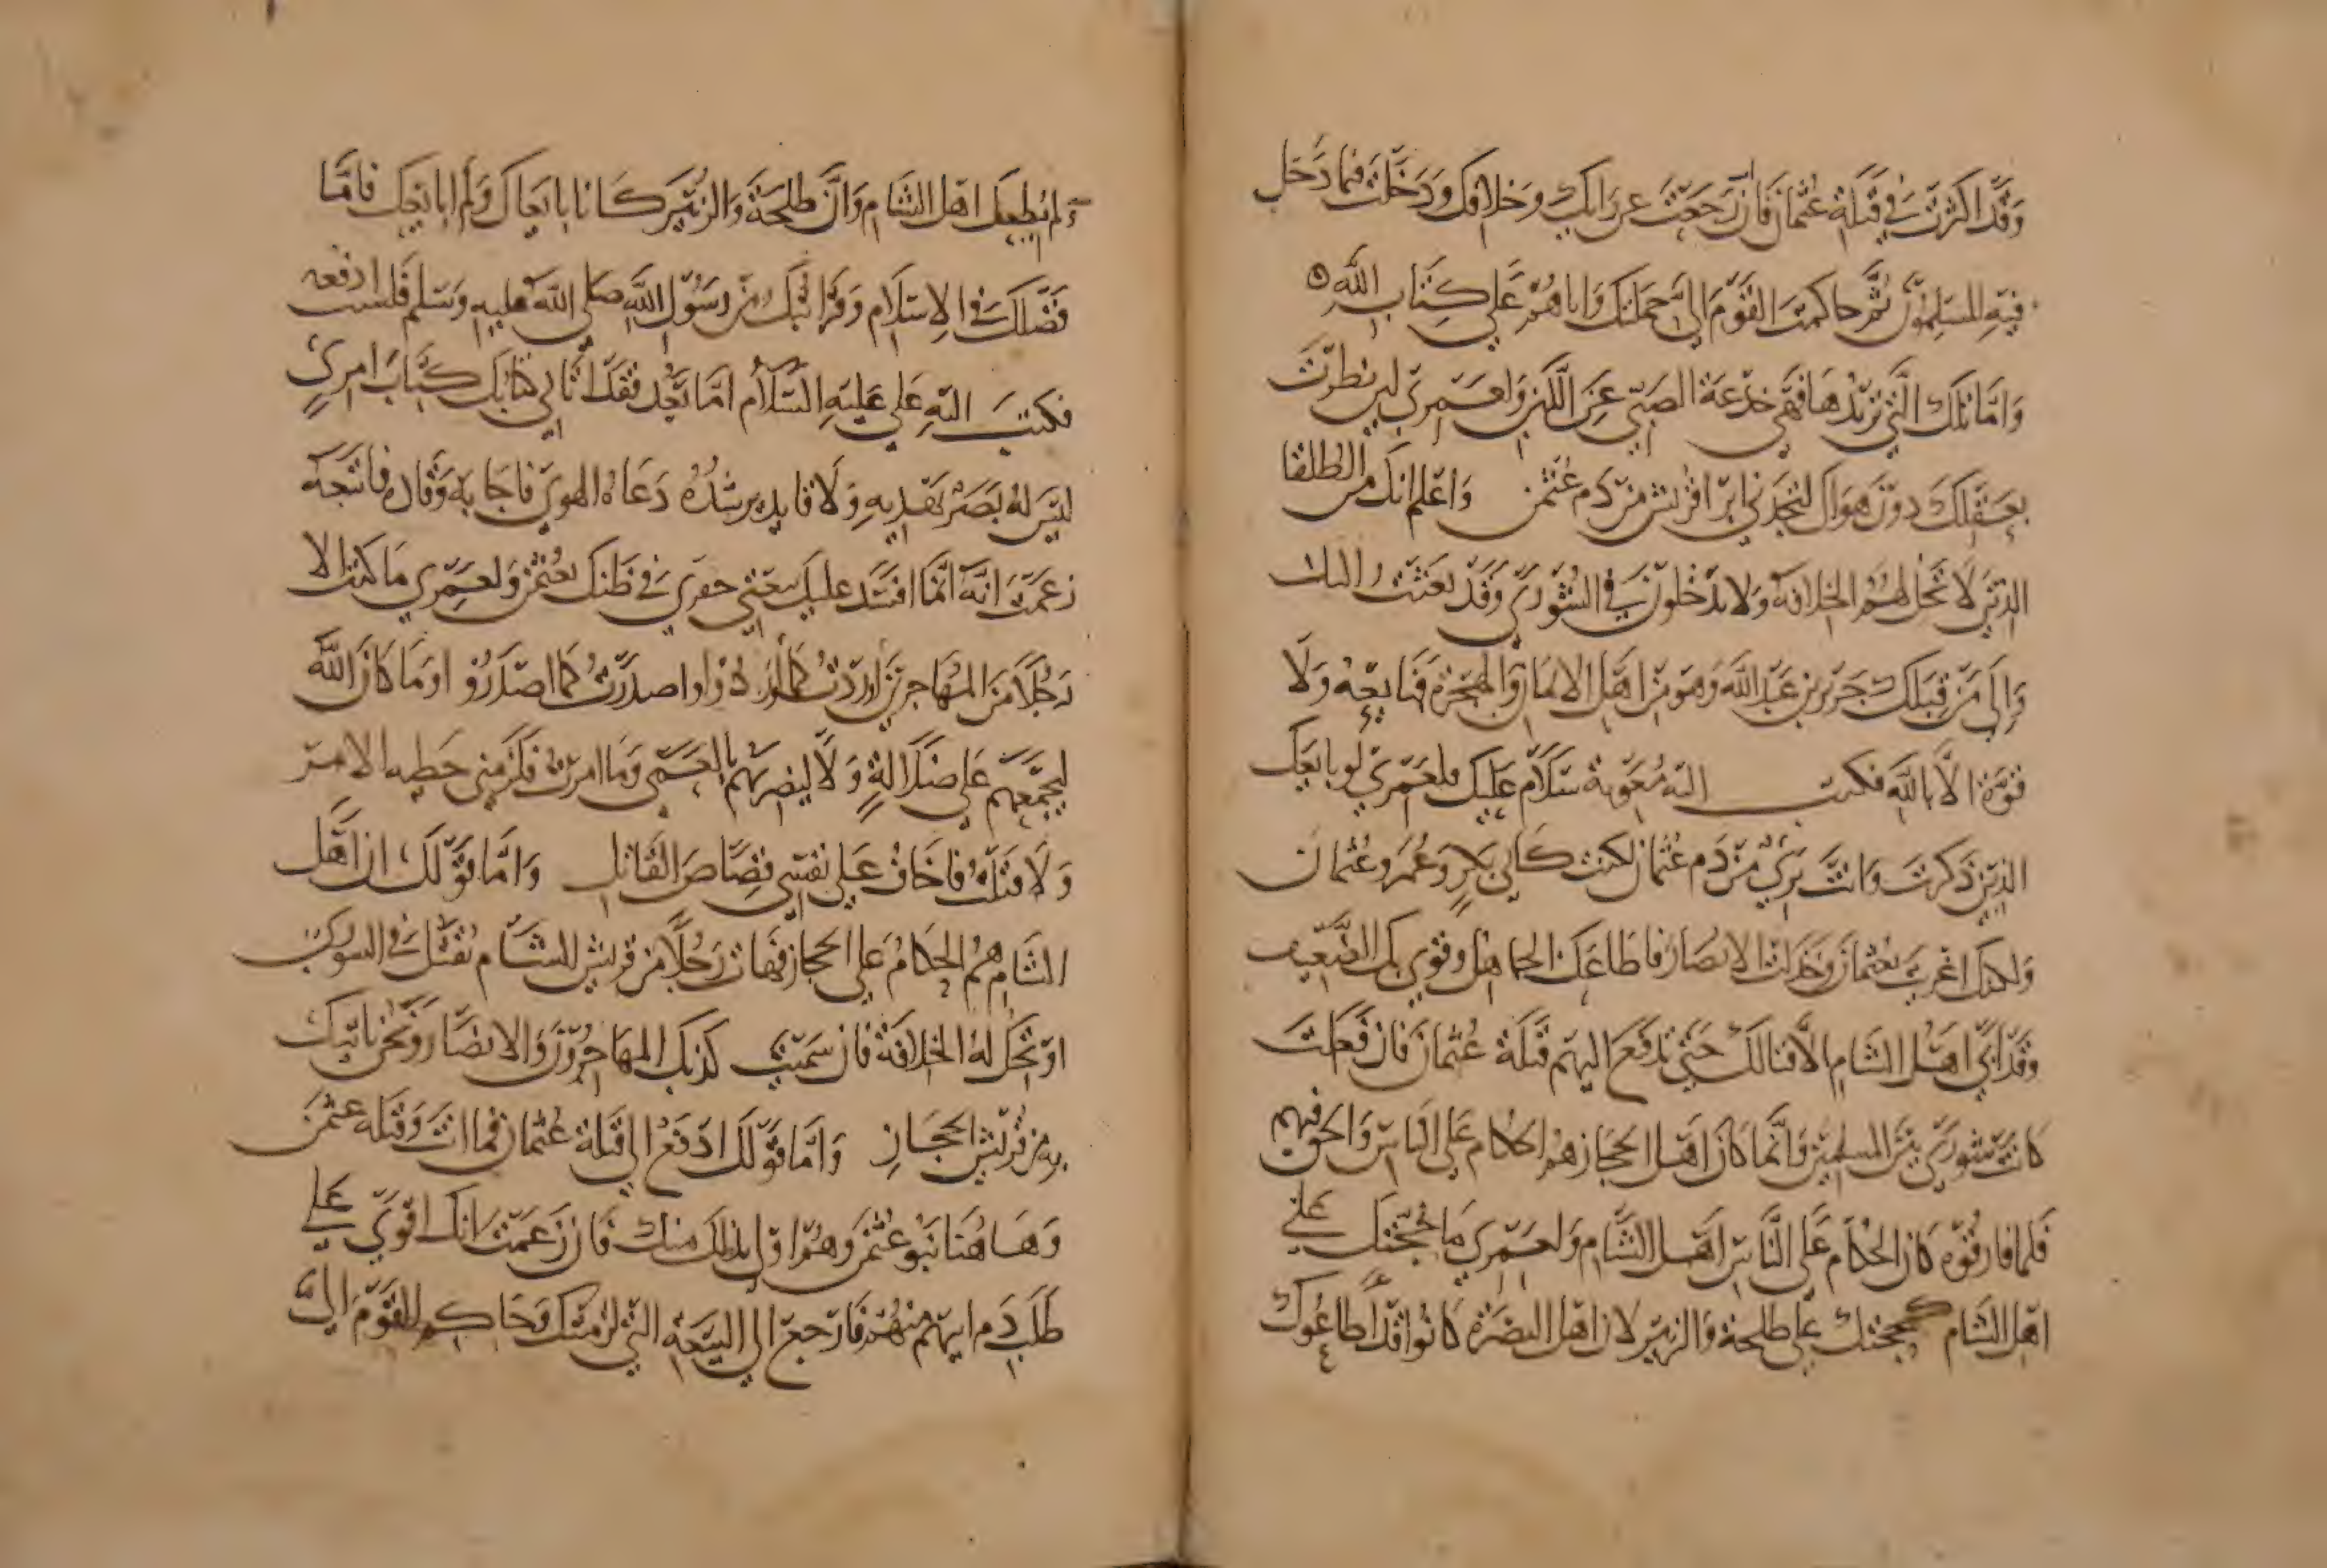 وقد اكثرت في قتلة عثمان فان رجعت عن رايك وخلافك ودخلت فيما دخل
فيه المسلمون ثم حاكمت القوم الي حملتك واياهم علي كتاب الله
واما تلك التي تريدها فهي خدعة الصبي عن اللبن ولعمري لين نظرت
بعقلك دون هواك لتجدني ابرا قريش من دم عثمن واعلم انك من الطلقا
الذين لا تحل لهم الخلافة ولا يدخلون في الشوري وقد بعثت اليك
والي من قبلك جرير بن عبد الله وهو من اهل الايمان والهجرة فبايعه ولا
قوة الا بالله فكتب اليه معوية سلام عليك فلعمري لو بايعك
الذين ذكرت وانت بري من دم عثمان لكنت كابي بكر وعمر وعثمان
ولكنك اغريت بعثمان وخذلت الانصار فاطاعك الجاهل وقوي بك الضعيف
وقد ابي اهل الشام الا قتالك حتي تدفع اليهم قتلة عثمان فان فعلت
كانت شوري بين المسلمين وانما كان اهل الحجاز هم الحكام علي الناس والحق فيهم
فلما فارقوه كان الحكام علي الناس اهل الشام ولعمري ما حجتك علي
اهل الشام كحجتك علي طلحة والزبير لان اهل البصرة كانوا قد اطاعوك
ولم يطعك اهل الشام وان طلحة والزبير كانا بايعاك ولم ابايعك فاما
فضلك في الاسلام وقرابتك من رسول الله صلي الله عليه وسلم فلست ادفعه
فكتب اليه علي عليه السلام اما بعد فقد اتاني كتابك كتاب امري
ليس له بصر يهديه ولا قايد يرشده دعاه الهوي فاجابه وقاده فاتبعه
زعمت انه انما افسد عليك بيعتي خفري في ظنك بعثمن ولعمري ما كنت الا
رجلا من المهاجرين اوردت كما اوردوا واصدرت كما اصدروا وما كان الله
ليجمعهم علي ضلالة ولا ليضربهم بالعمي وما امرت فلزمني خطيه الامر
ولا قتلته فاخاف علي نفسي قصاص القاتل واما قولك ان اهل
الشام هم الحكام علي الحجاز فهات رجلا من قريش الشام يقبل في الشوري
او تحل له الخلافة فان سميت كذبك المهاجرون والانصار ونحن ناتيك
به من قريش الحجاز واما قولك ادفع الي قتلة عثمان فما انت وقتله عثمن
وهاهنا بنو عثمن وهم اولي بذلك منك فان زعمت انك اقوي علي
طلب دم ابيهم منهم فارجع الي البيعه التي لزمتك وحاكم القوم الي